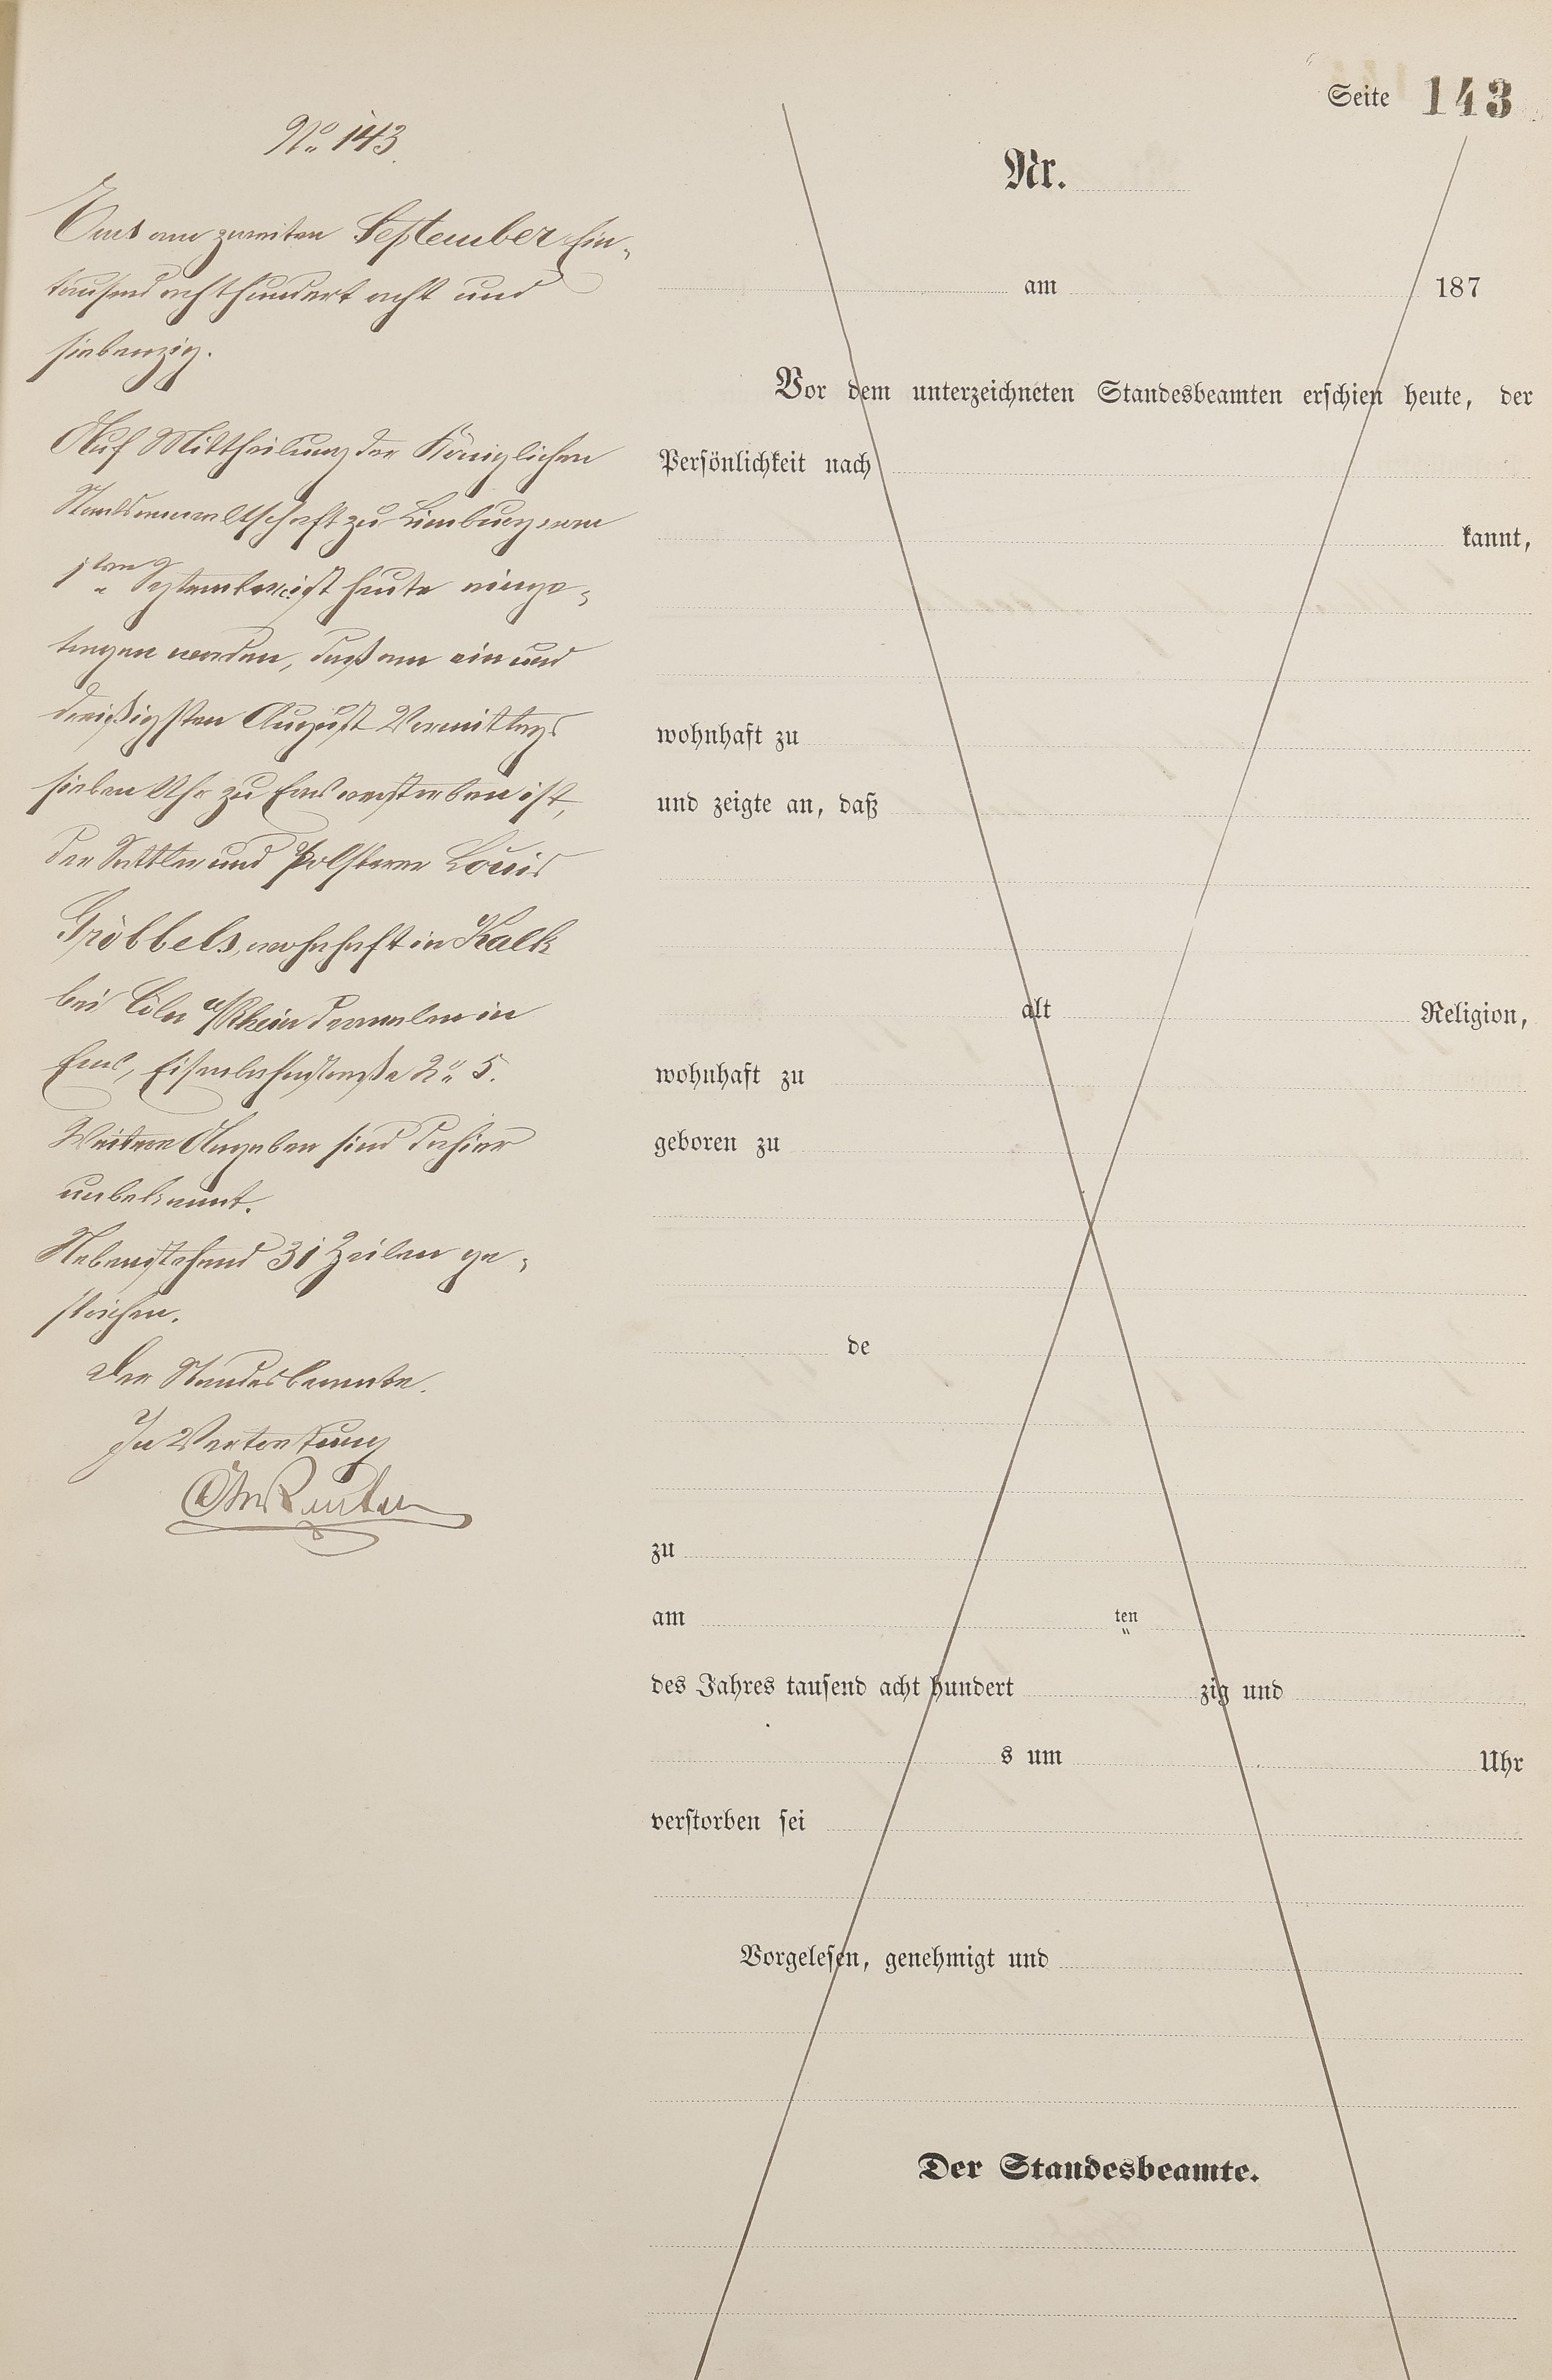 Seite 143
No. 143.
Ems am zweiten September Ein-
tausend achthundert acht und
siebenzig.
Auf Mittheilung der Königlichen
Staatsanwaltschaft zu Limburg vom
1ten September ist heute einge-
tragen worden, daß am ein und
dreißigsten August Vormittags
sieben Uhr zu Ems verstorben ist,
der Sattler und Polsterer Louis
Gröbbels, wohnhaft in Kalk
bei Cöln a/Rhein dermalen in
Ems, Eisenbahnstraße No. 5.
Weitere Angaben sind dahier
unbekannt.
Nebenstehend 31 Zeilen ge-
strichen.
Der Standesbeamte.
In Vertretung
Nr.
am 187
Vor dem unterzeichneten Standesbeamten erschien heute, der
Persönlichkeit nach
kannt,
wohnhaft zu
und zeigte an, daß
alt Religion,
wohnhaft zu
geboren zu
de
zu
am ten
des Jahres tausend acht hundert zig und
s um Uhr
verstorben sei
Vorgelesen, genehmigt und
Der Standesbeamte.